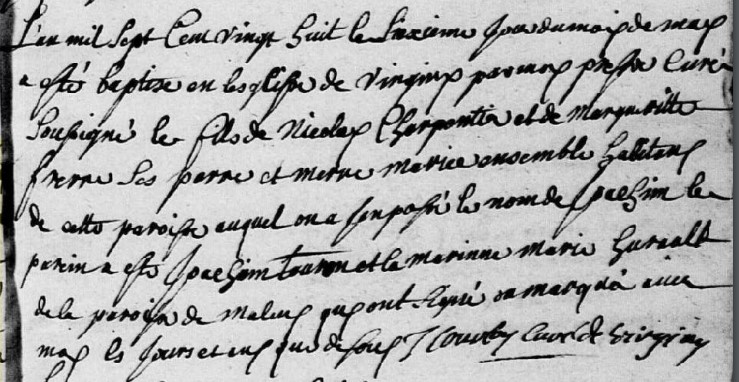 L'an mil sept cent vingt huit le sixieme jour du mois de may
a esté baptise en lesglise de Virginy par moy prestre curé
soussigné le fils de Nicolas Charpentier et de Margueritte
frerre ses perre et merre mariée ensemble habitans
de cette paroisse auquel on a imposé le nom de Joachim le
parin a esté Joachim et la marinne marie hurault
de la paroisse de qui ont signé ou marqué avec
moy les jours et an que dessus J curé de virginy